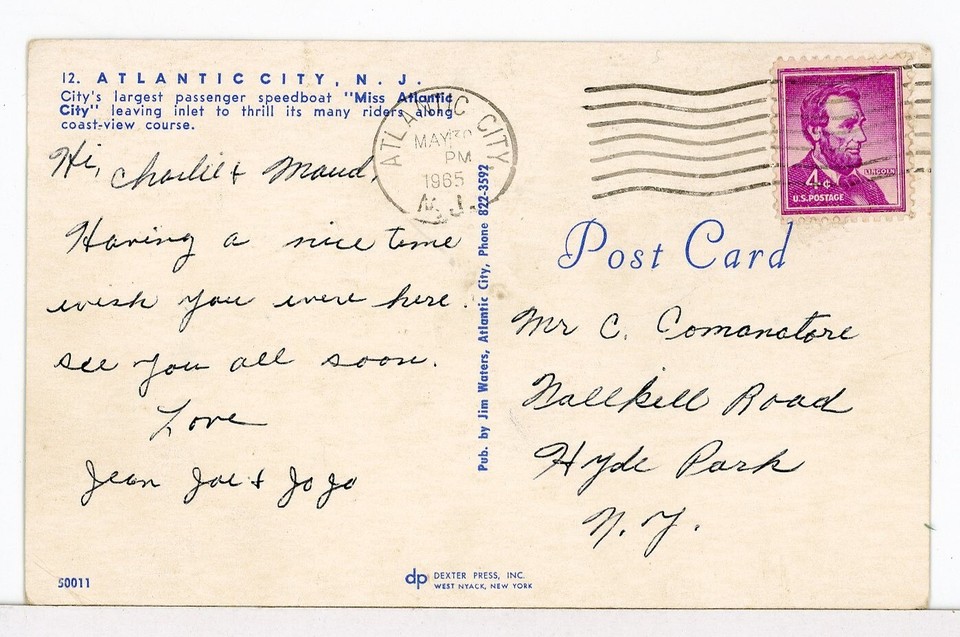 12. ATLANTIC CITY, N. J.
City's largest passenger speedboat "Miss Atlantic
City" leaving inlet to thrill its many riders along
coast-view course.
Hi, Charlie & Maud,
Having a nice time
wish you were here.
see you all soon.
Love
Jean Joe & JoJo
50011
ATLANTIC CITY
MAY 30
PM
1965
N.J.
Pub. by Jim Waters, Atlantic City, Phone 822-3592
DEXTER PRESS, INC.
WEST NYACK, NEW YORK
dp
LINCOLN
4¢
U.S. POSTAGE
Post Card
Mr C. Comanatore
Wallkill Road
Hyde Park
N.Y.